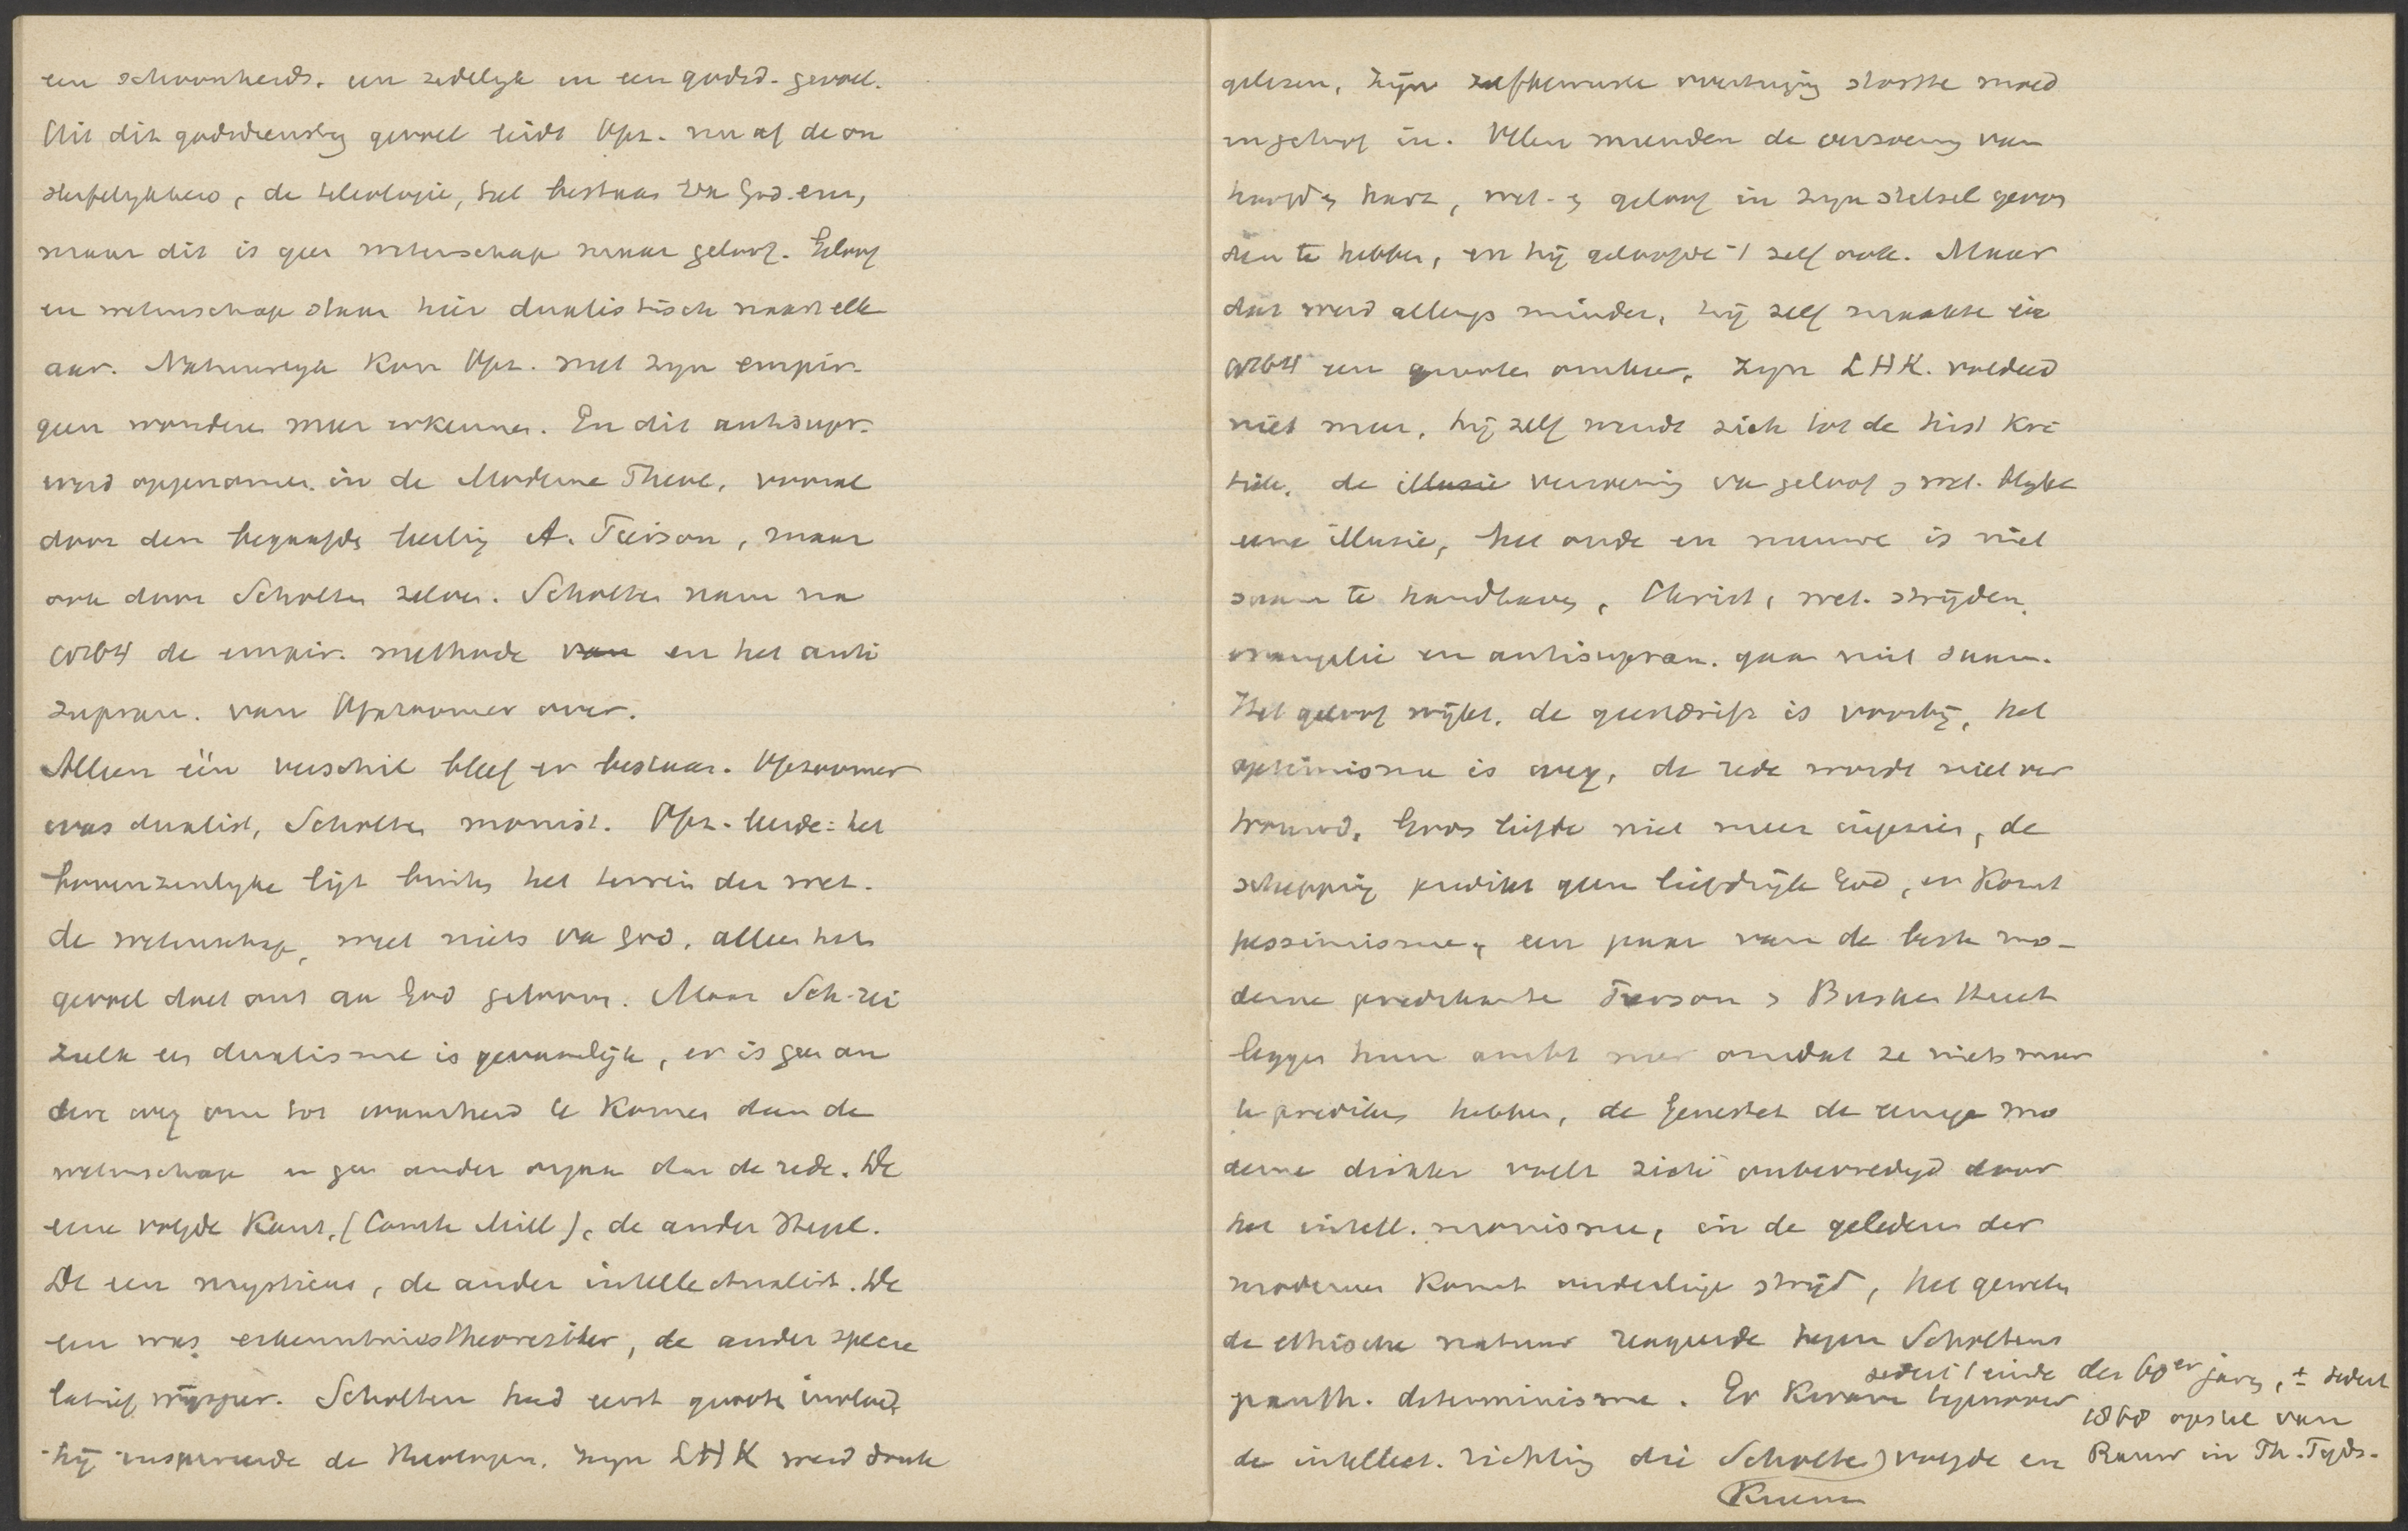 een schoonheids. een zedelijk en een godsd. gevoel.
Uit dit godsdienstig gevoel leidt Opz. nu af de on
sterfelykheid, de teleologie, het bestaan van God enz,
maar dit is geen wetenschap maar geloof. Geloof
en wetenschap staan hier dualistisch naast elk
aar. Natuurlyk kon Opz. met zyn empir.
geen wonderen meer erkennen. En dit antisupr.
werd opgenomen in de Moderne Theol, vooral
door den begaafde leerling A. Pierson, maar
ook door Scholten zelven. Scholten nam na
1864 de empir. methode van en het anti
supran. van Opzoomer over.
Alleen één verschil bleef er bestaan. Opzoomer
was dualist, Scholten monist. Opz. leerde: het
bovenzinlyke ligt buiten het terrein der wet.
de wetenschap weet niets van God, alleen het
gevoel doet ons aan God gelooven. Maar Sch. zei
zulk een dualisme is gevaarlijk, er is geen an
dere weg om tot waarheid te komen dan de
wetenschap en geen ander orgaan dan de rede. De
eene volgde Kant, (Comte Mill), de ander Hegel.
De een mysticus, de ander intellectualist. De
een was erkenntnistheoretiker, de ander specu
latief wijsgeer. Scholten had eerst groote invloed,
hij inspireerde de theologen. zyn LHK werd druk
gelezen, zijn zelfbewuste overtuiging stortte moed
en geloof in. Velen meenden de verzoening van
hoofd en hart, wet. en geloof in zyn stelsel gevon
den te hebben, en hij geloofde 't zelf ook. Maar
dat werd allengs minder, hij zelf maakte in
1864 een groote omkeer, zyn LHK. voldeed
niet meer, hij zelf wendt zich tot de hist kri
tiek, de illusie verzoening van geloof en wet. blykt
eene illusie, het oude en nieuwe is niet
saam te handhaven, Christ, wet. strijden,
evangelie en antisupran. gaan niet saam.
Het geloof wijkt, de geestdrift is voorbij, het
optimisme is weg, de rede wordt niet ver
trouwd, Gods liefde niet meer ingezien, de
schepping predikt geen liefdrijk God, er komt
pessimisme, een paar van de beste mo-
derne predikante Pierson en Busken Huet
leggen hun ambt neer omdat ze niets meer
te prediken hebben, de Genestet de eenige mo
derne dichter voelt zich onbevredigd door
het intell. monisme, in de gelederen der
modernen komt onderlinge strijd, het geweten
de ethische natuur reageerde tegen Scholtens
panth. determinisme. Er kwam tegenover
sedert 't einde der 60er jaren, ± sedert
1868 opstel van
de intellect. richting die Scholten volgde en Rauw in Th. Tyds.
Kuenen